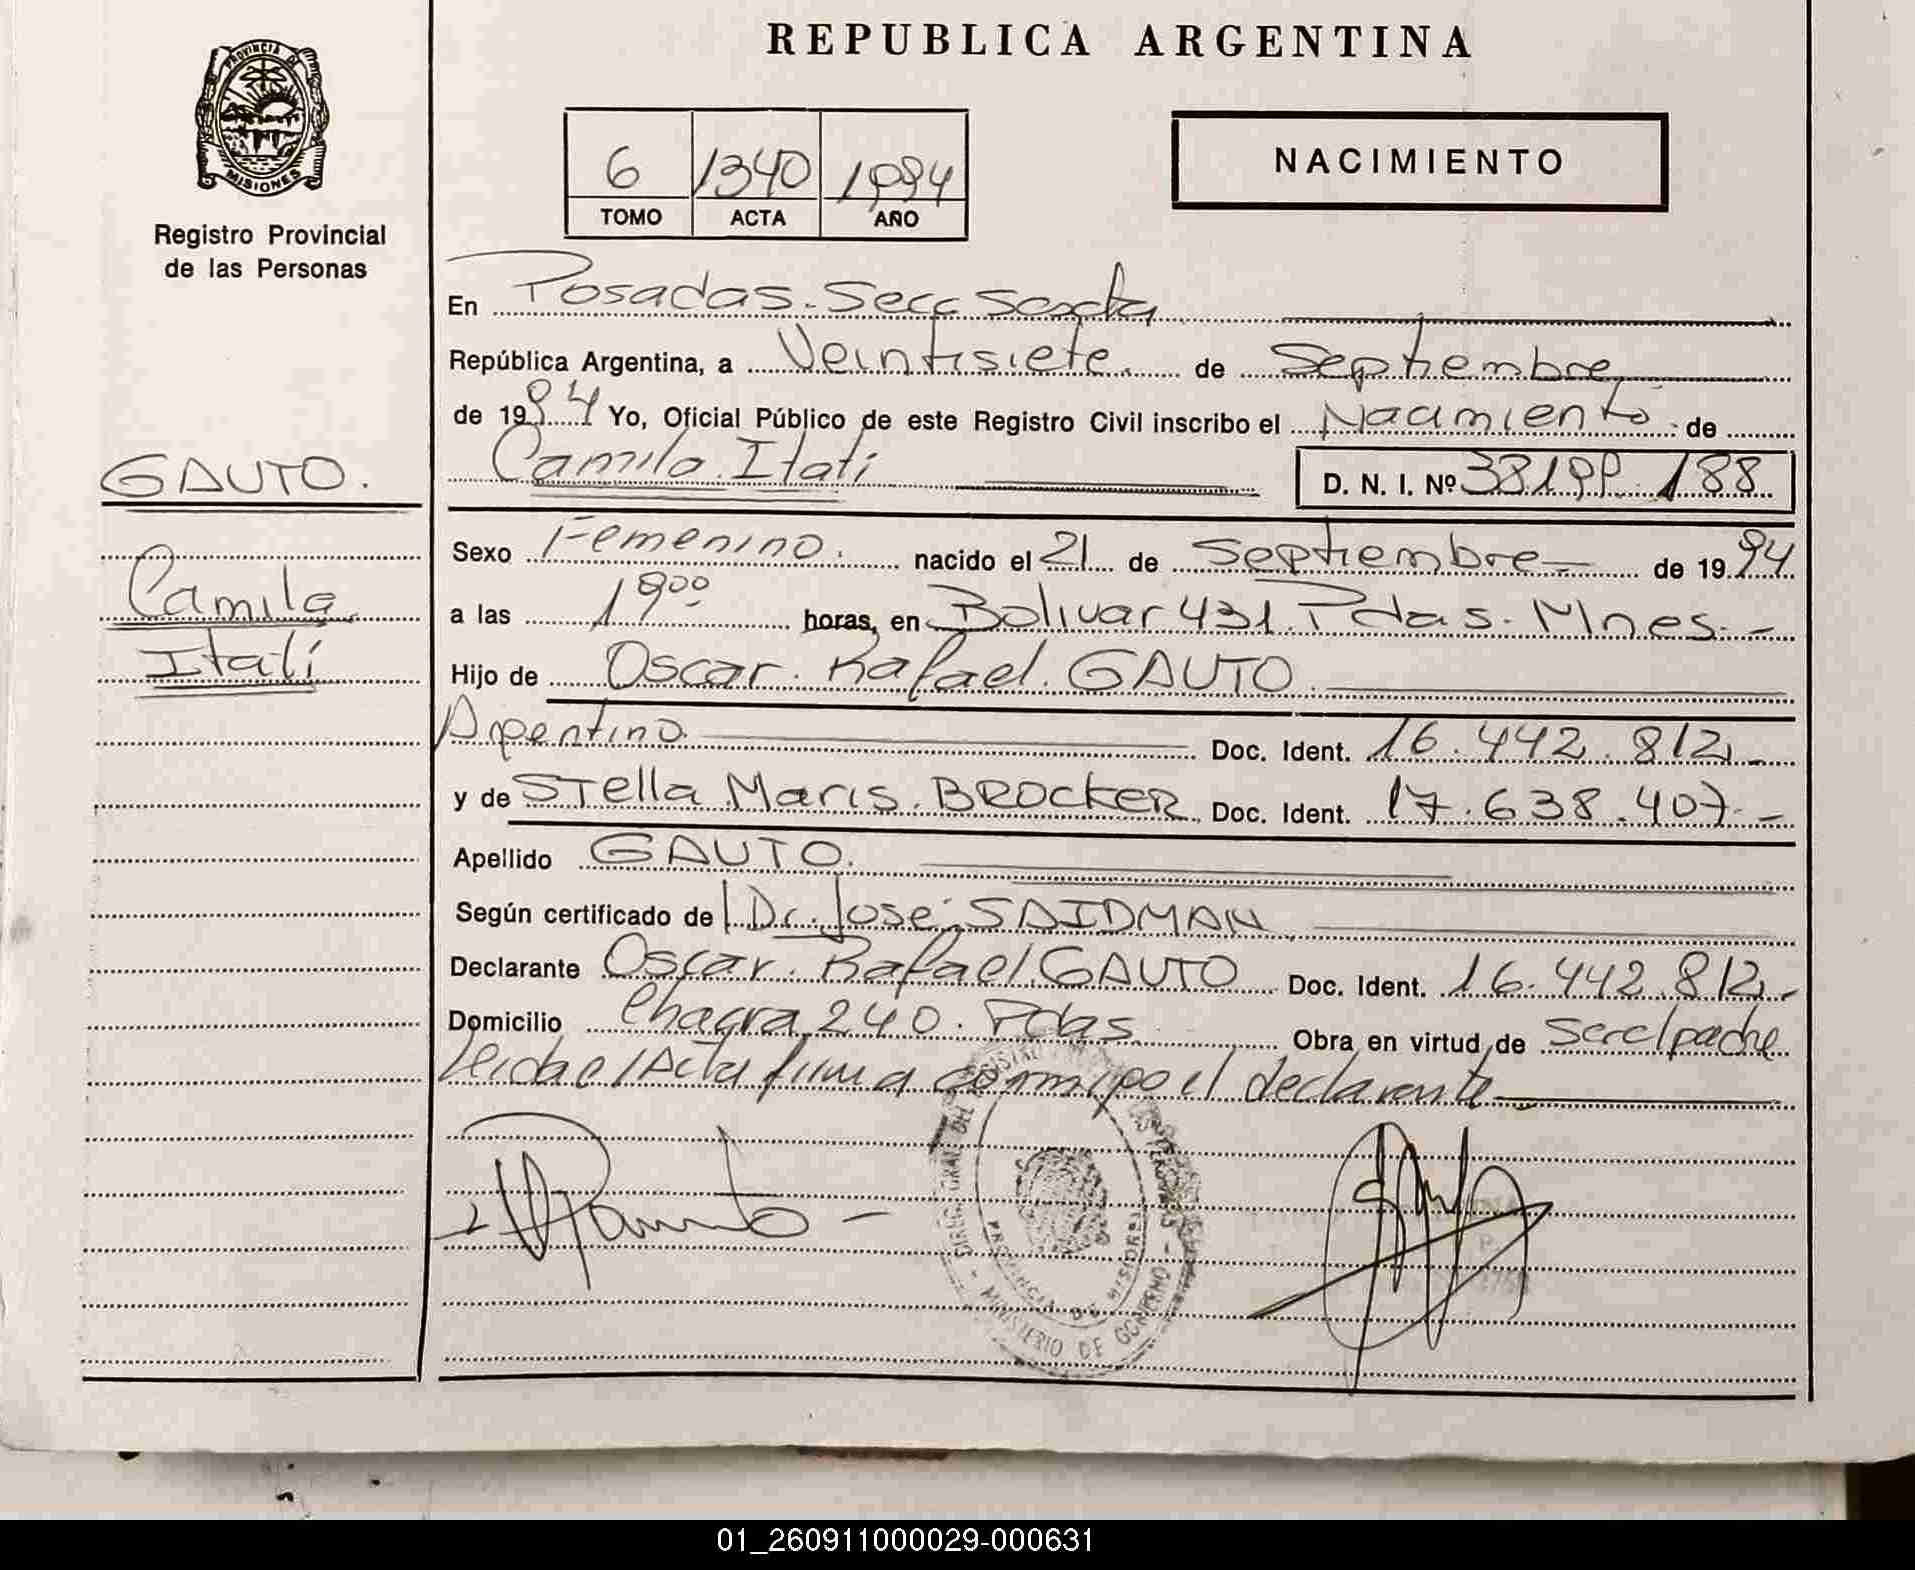 REPUBLICA ARGENTINA
PROVINCIA DE
MISIONES
Registro Provincial
de las Personas
6 1340 1994
TOMO ACTA AÑO
NACIMIENTO
En Posadas. Secc Sexta
República Argentina, a Veintisiete de Septiembre
de 1994 Yo, Oficial Público de este Registro Civil inscribo el Nacimiento de
Camila Itatí D. N. I. Nº 38199 188
GAUTO.
Camila
Itatí
Sexo Femenino. nacido el 21 de Septiembre de 1994
a las 19⁰⁰ horas, en Bolivar 431. Pdas. Mnes.
Hijo de Oscar Rafael GAUTO
Argentino Doc. Ident. 16.442.812
y de Stella Maris BROCKER Doc. Ident. 17.638.407
Apellido GAUTO.
Según certificado de Dr. José SAIDMAN
Declarante Oscar Rafael GAUTO Doc. Ident. 16.442.812
Domicilio Chacra 240. Pdas Obra en virtud de ser el padre
Leida el Acta firma conmigo el declarante
MINISTERIO DE GOBIERNO
PROVINCIA DE MISIONES
01_260911000029-000631